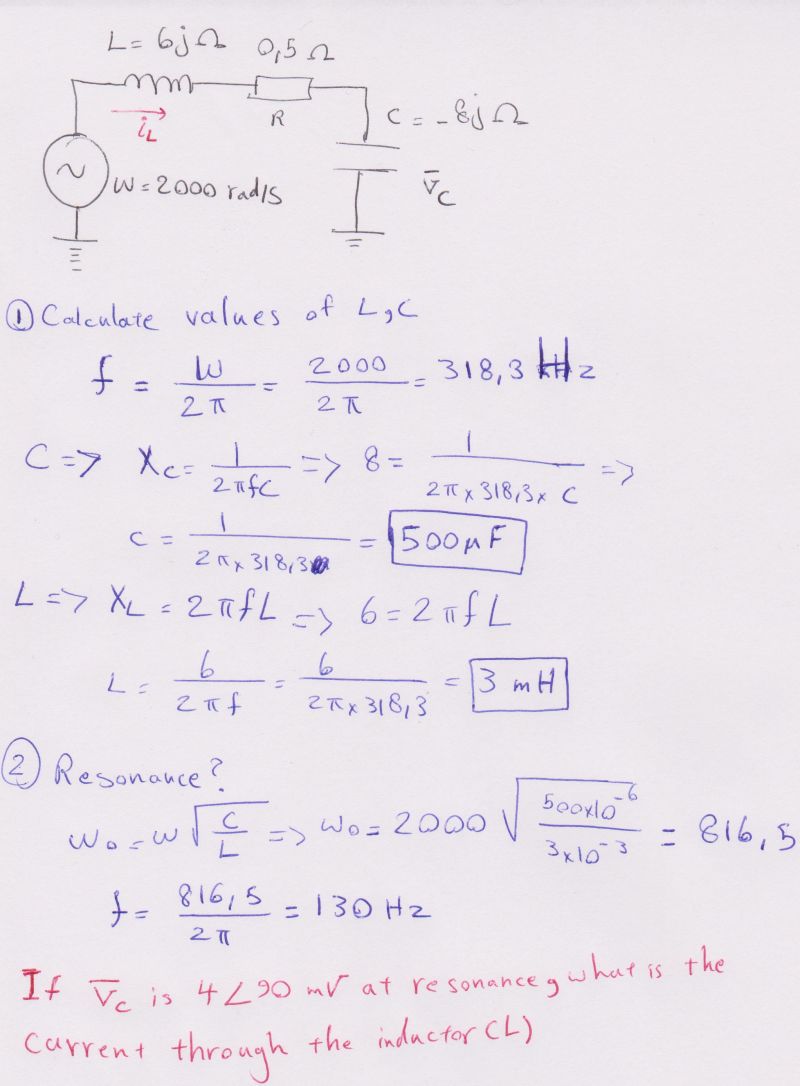 L = 6jΩ 0,5 Ω
R
iL
C = -8jΩ
W = 2000 rad/s
V̄c
① Calculate values of L, C
f = W / 2π = 2000 / 2π = 318,3 Hz
C => Xc = 1 / 2πfC => 8 = 1 / 2π x 318,3 x C =>
C = 1 / 2π x 318,3 = 500 µF
L => XL = 2πfL => 6 = 2πfL
L = 6 / 2πf = 6 / 2π x 318,3 = 3 mH
② Resonance?
Wo = W √(C / L) => Wo = 2000 √(500x10⁻⁶ / 3x10⁻³) = 816,5
f = 816,5 / 2π = 130 Hz
If V̄c is 4∠90 mV at resonance, what is the
current through the inductor (L)